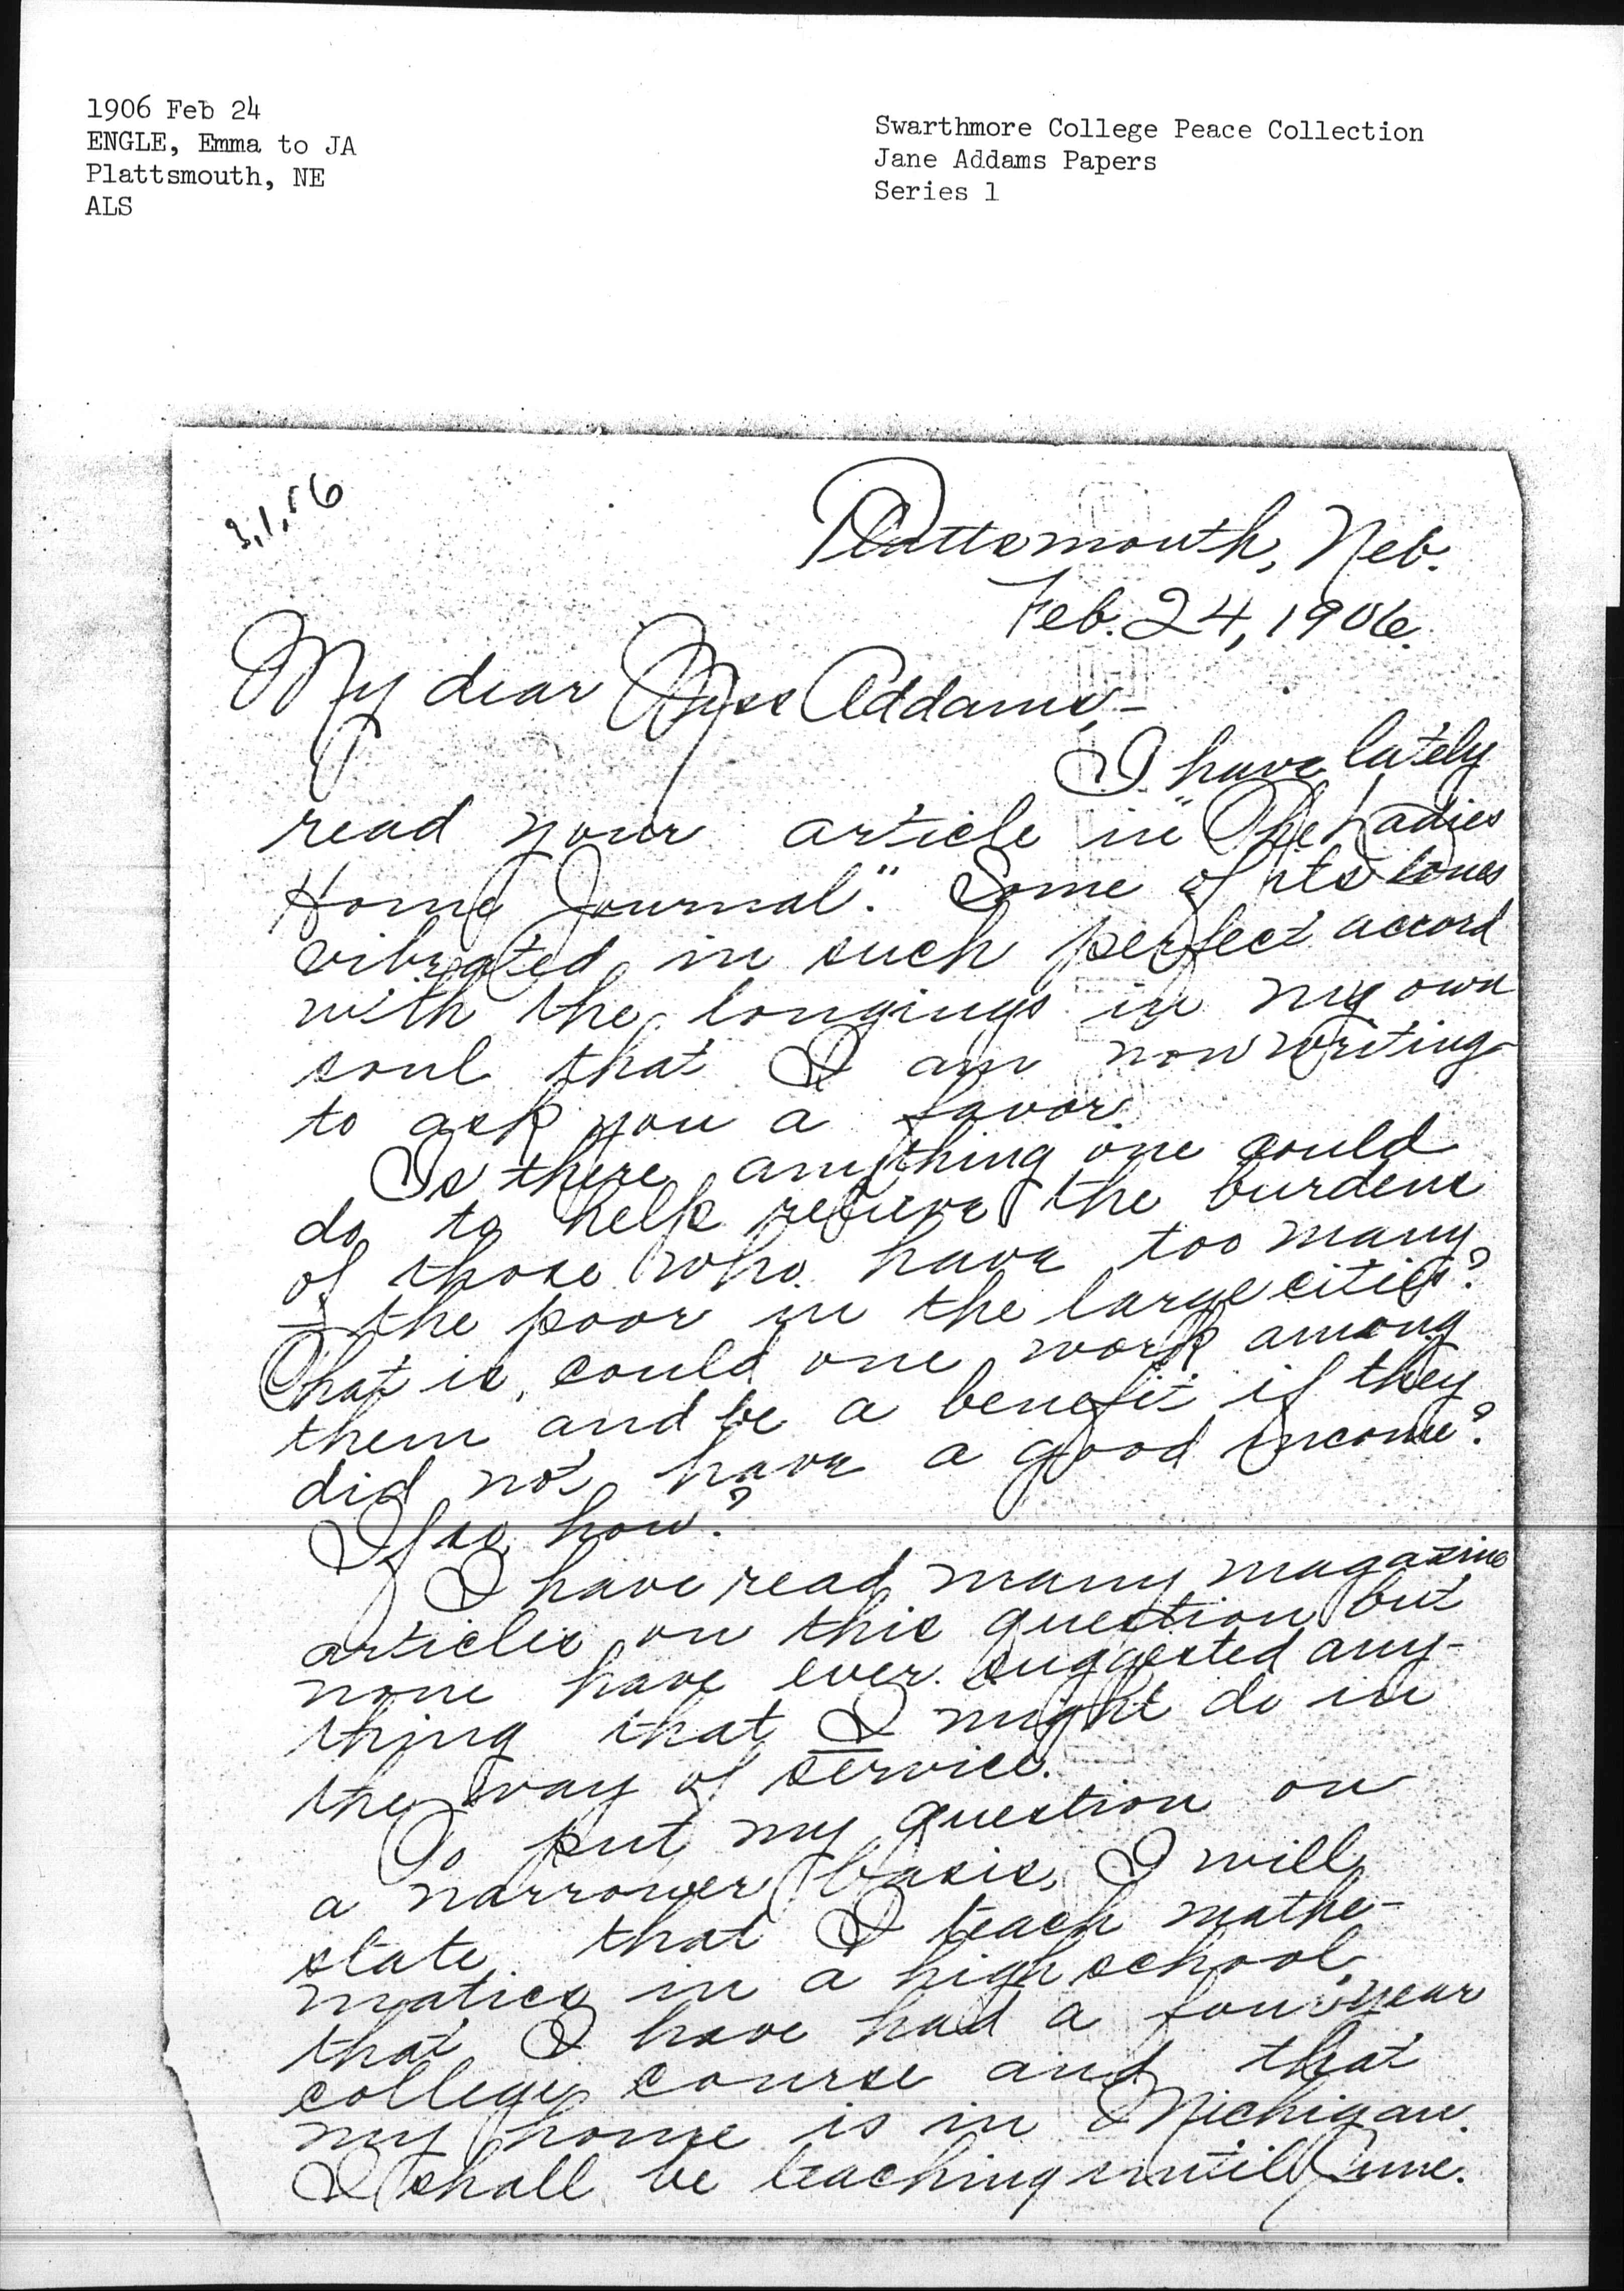 1906 Feb 24
ENGLE, Emma to JA
Plattsmouth, NE
ALS
Swarthmore College Peace Collection
Jane Addams Papers
Series 1
3,1,'06
Plattsmouth, Neb.
Feb. 24, 1906.
My dear Miss Addams,-
I have lately
read your article in "The Ladies
Home Journal". Some of its tones
vibrated in such perfect accord
with the longings in my own
soul that I am now writing
to ask you a favor.
Is there anything one could
do to help relieve the burdens
of those who have too many
- the poor in the large cities?
That is, could one work among
them and be a benefit if they
did not have a good income?
If so, how?
I have read many magazine
articles on this question but
none have ever suggested any-
thing that I might do in
the way of service.
To put my question on
a narrower basis, I will
state that I teach mathe-
matics in a high school,
that I have had a four-year
college course and that
my home is in Michigan.
I shall be teaching until June.